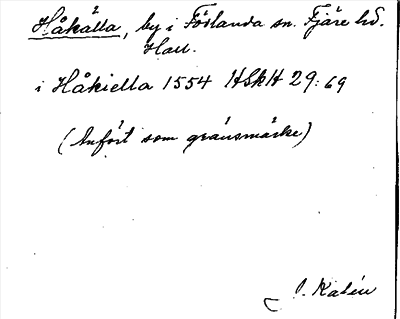 Håkälla, by i Förlanda sn. Fjäre hd.
Hall.
i Håkiella 1554 HSkH 29:69
(Anfört som gränsmärke)
J. Kalén